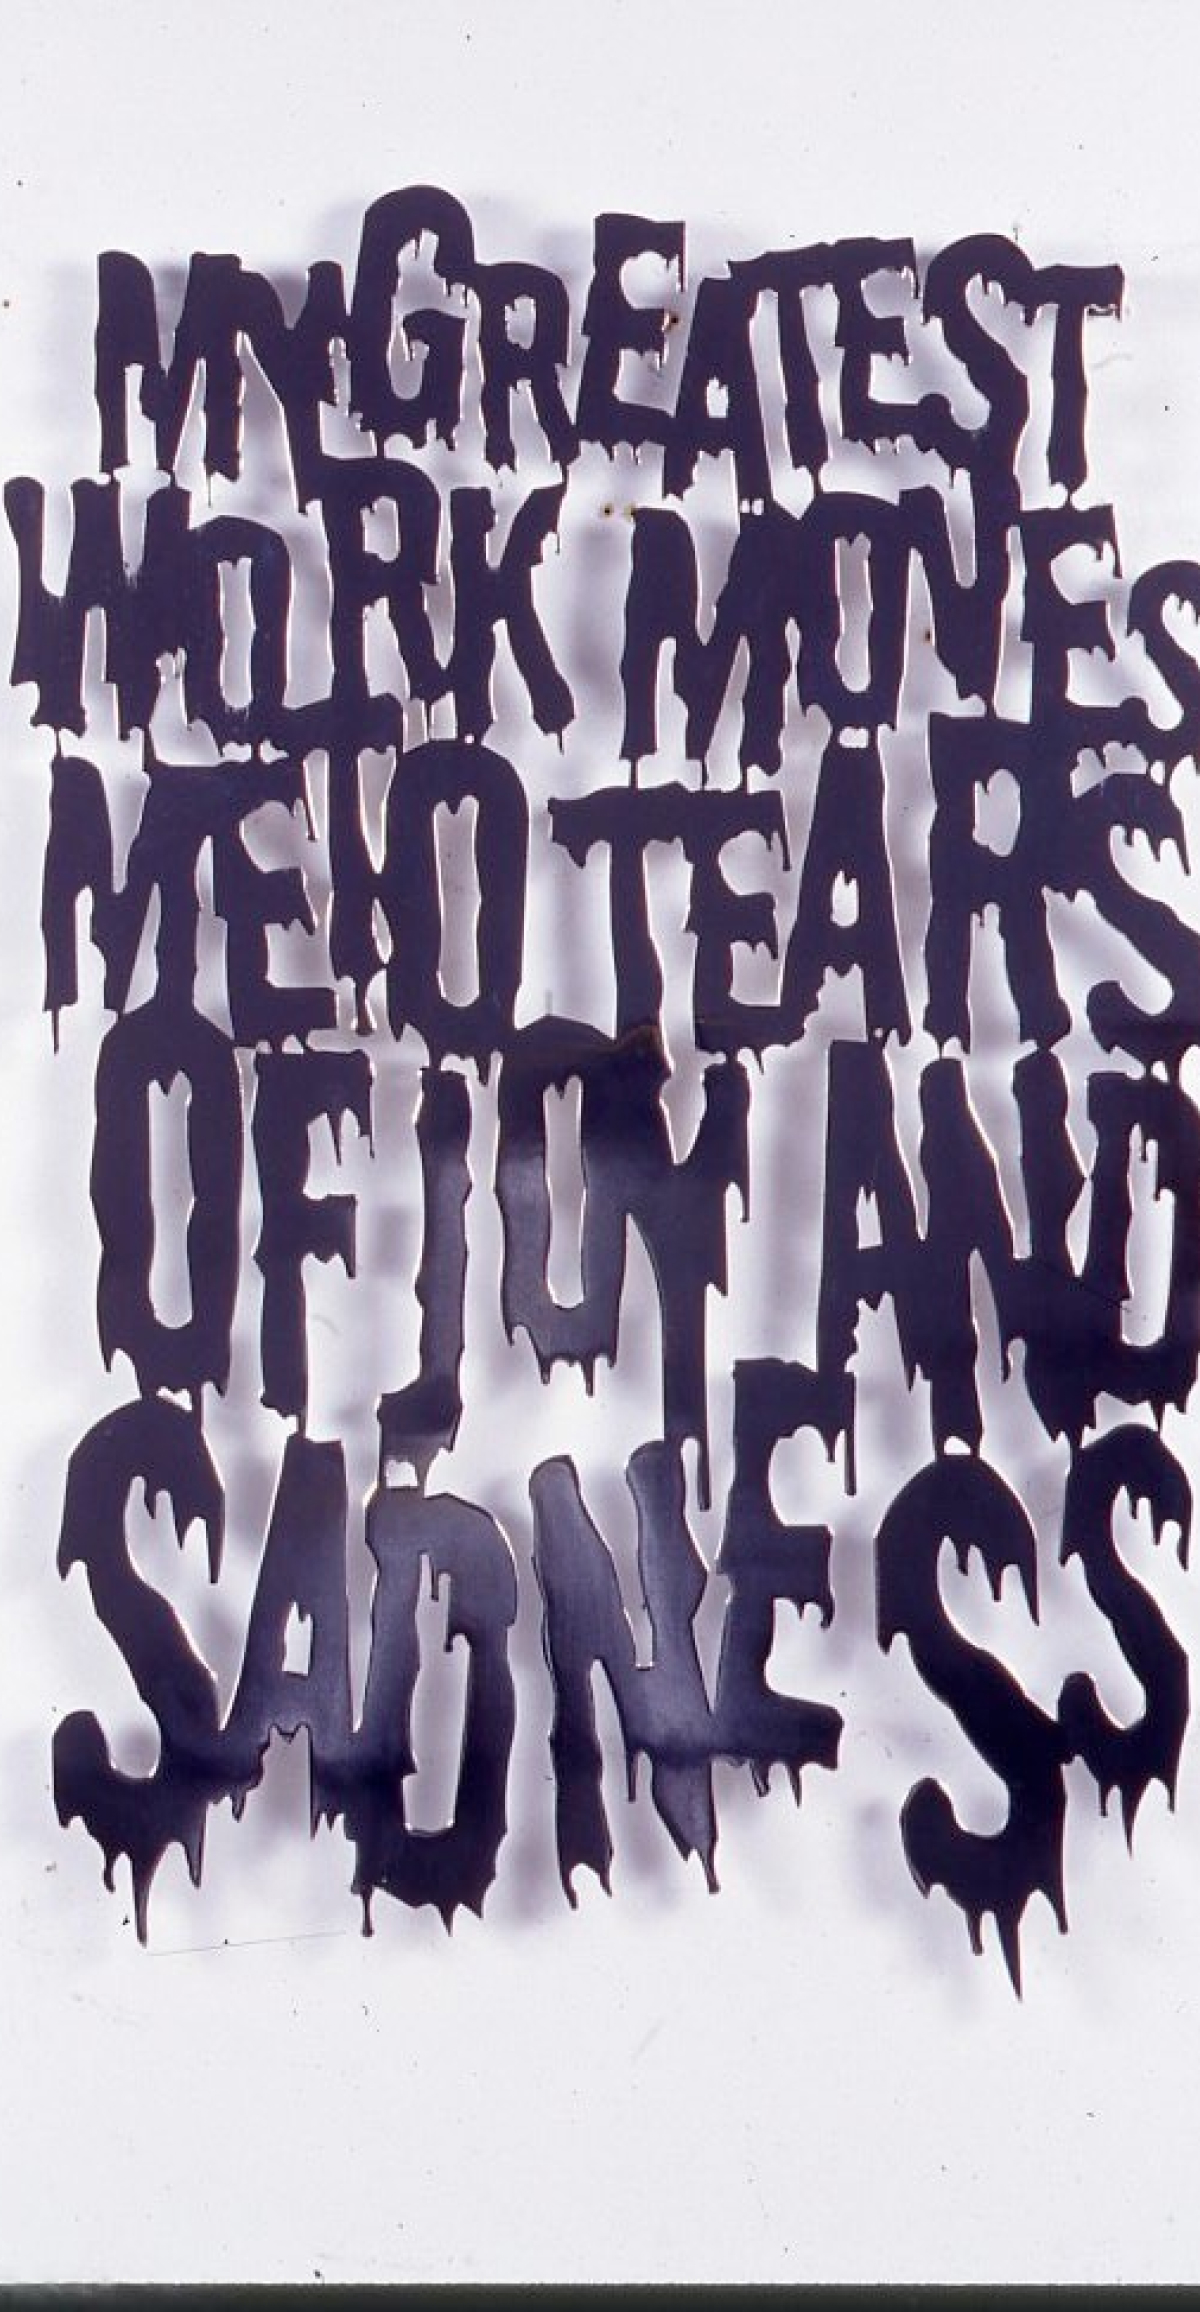 MY GREATEST
WORK MOVES
ME TO TEARS
OF JOY AND
SADNESS